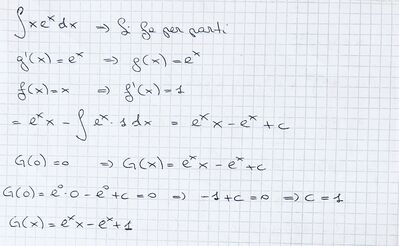 ∫xeˣdx ⇒ Si fa per parti
g'(x)=eˣ ⇒ g(x)=eˣ
f(x)=x ⇒ f'(x)=1
= eˣx - ∫eˣ·1dx = eˣx - eˣ+c
G(0)=0 ⇒ G(x)=eˣx-eˣ+c
G(0)=e⁰·0-e⁰+c=0 ⇒ -1+c=0 ⇒ c=1
G(x)=eˣx-eˣ+1